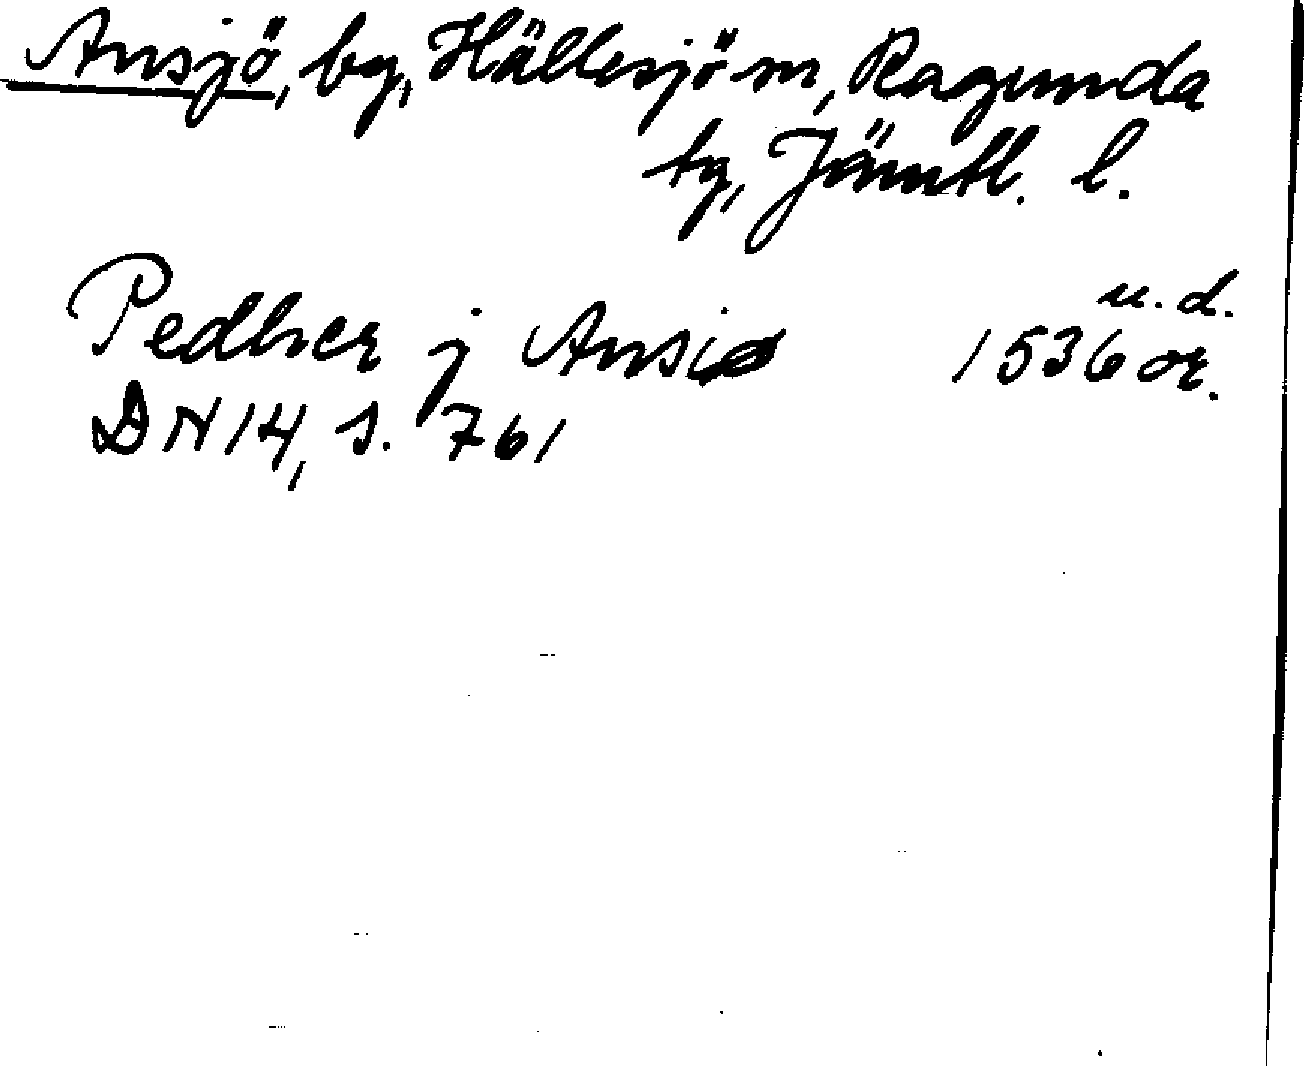 Ansjö, by, Hällesjö sn, Ragunda
tg, Jämtl. l.
u. d.
Pedher j Ansiø 1536 or.
DN 14, s. 761